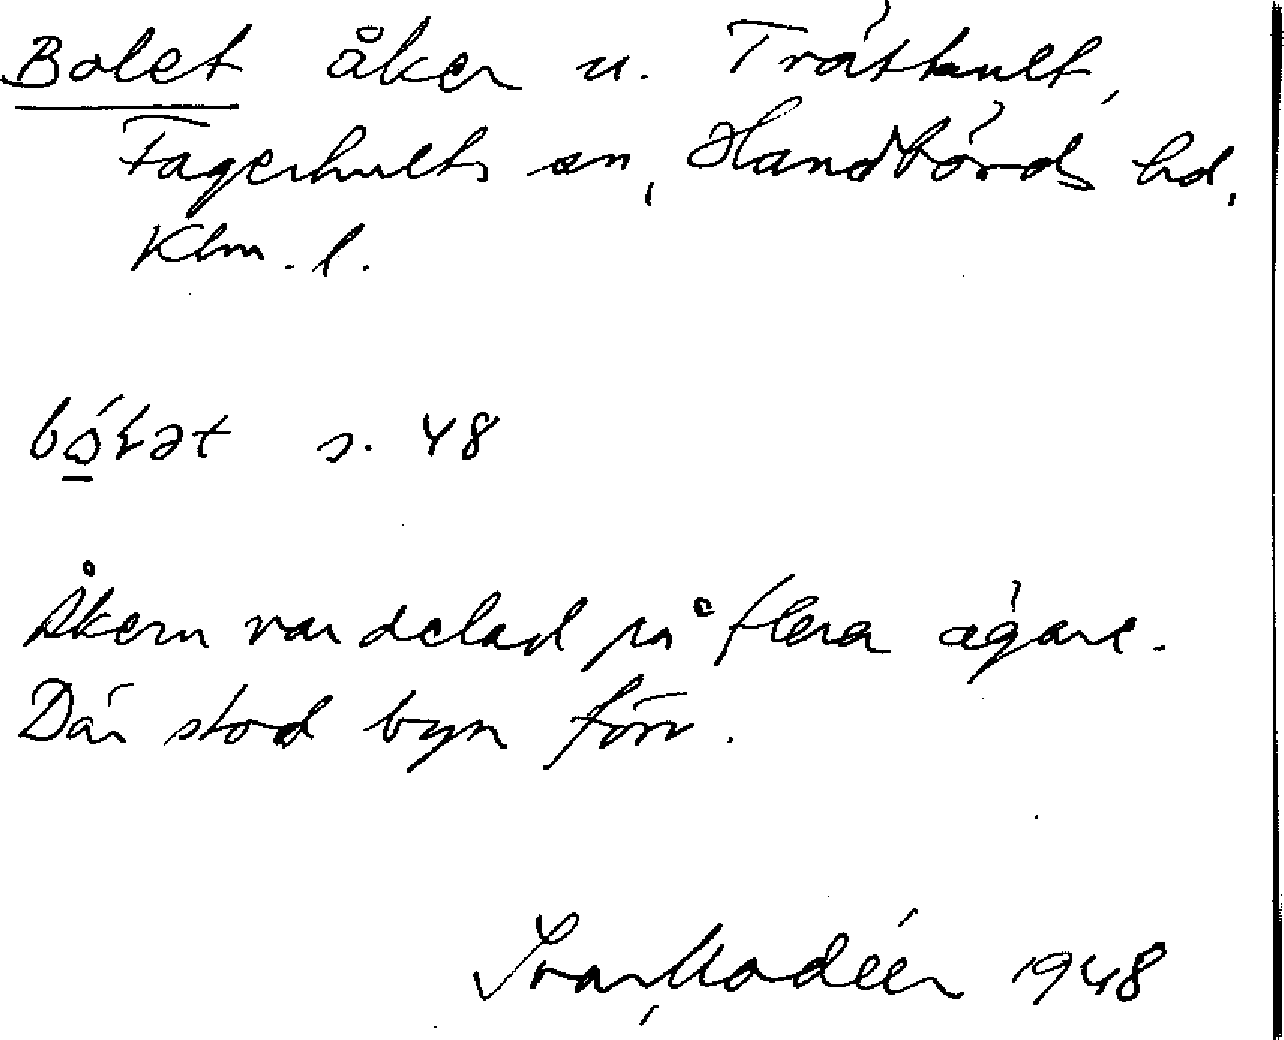 Bolet åker u. Trättkult,
Fagerhults sn, Handbörds hd,
Klm. l.
s. 48
Åkern var delad på flera ägare.
Där stod byn förr.
Ivar Modéer 1948